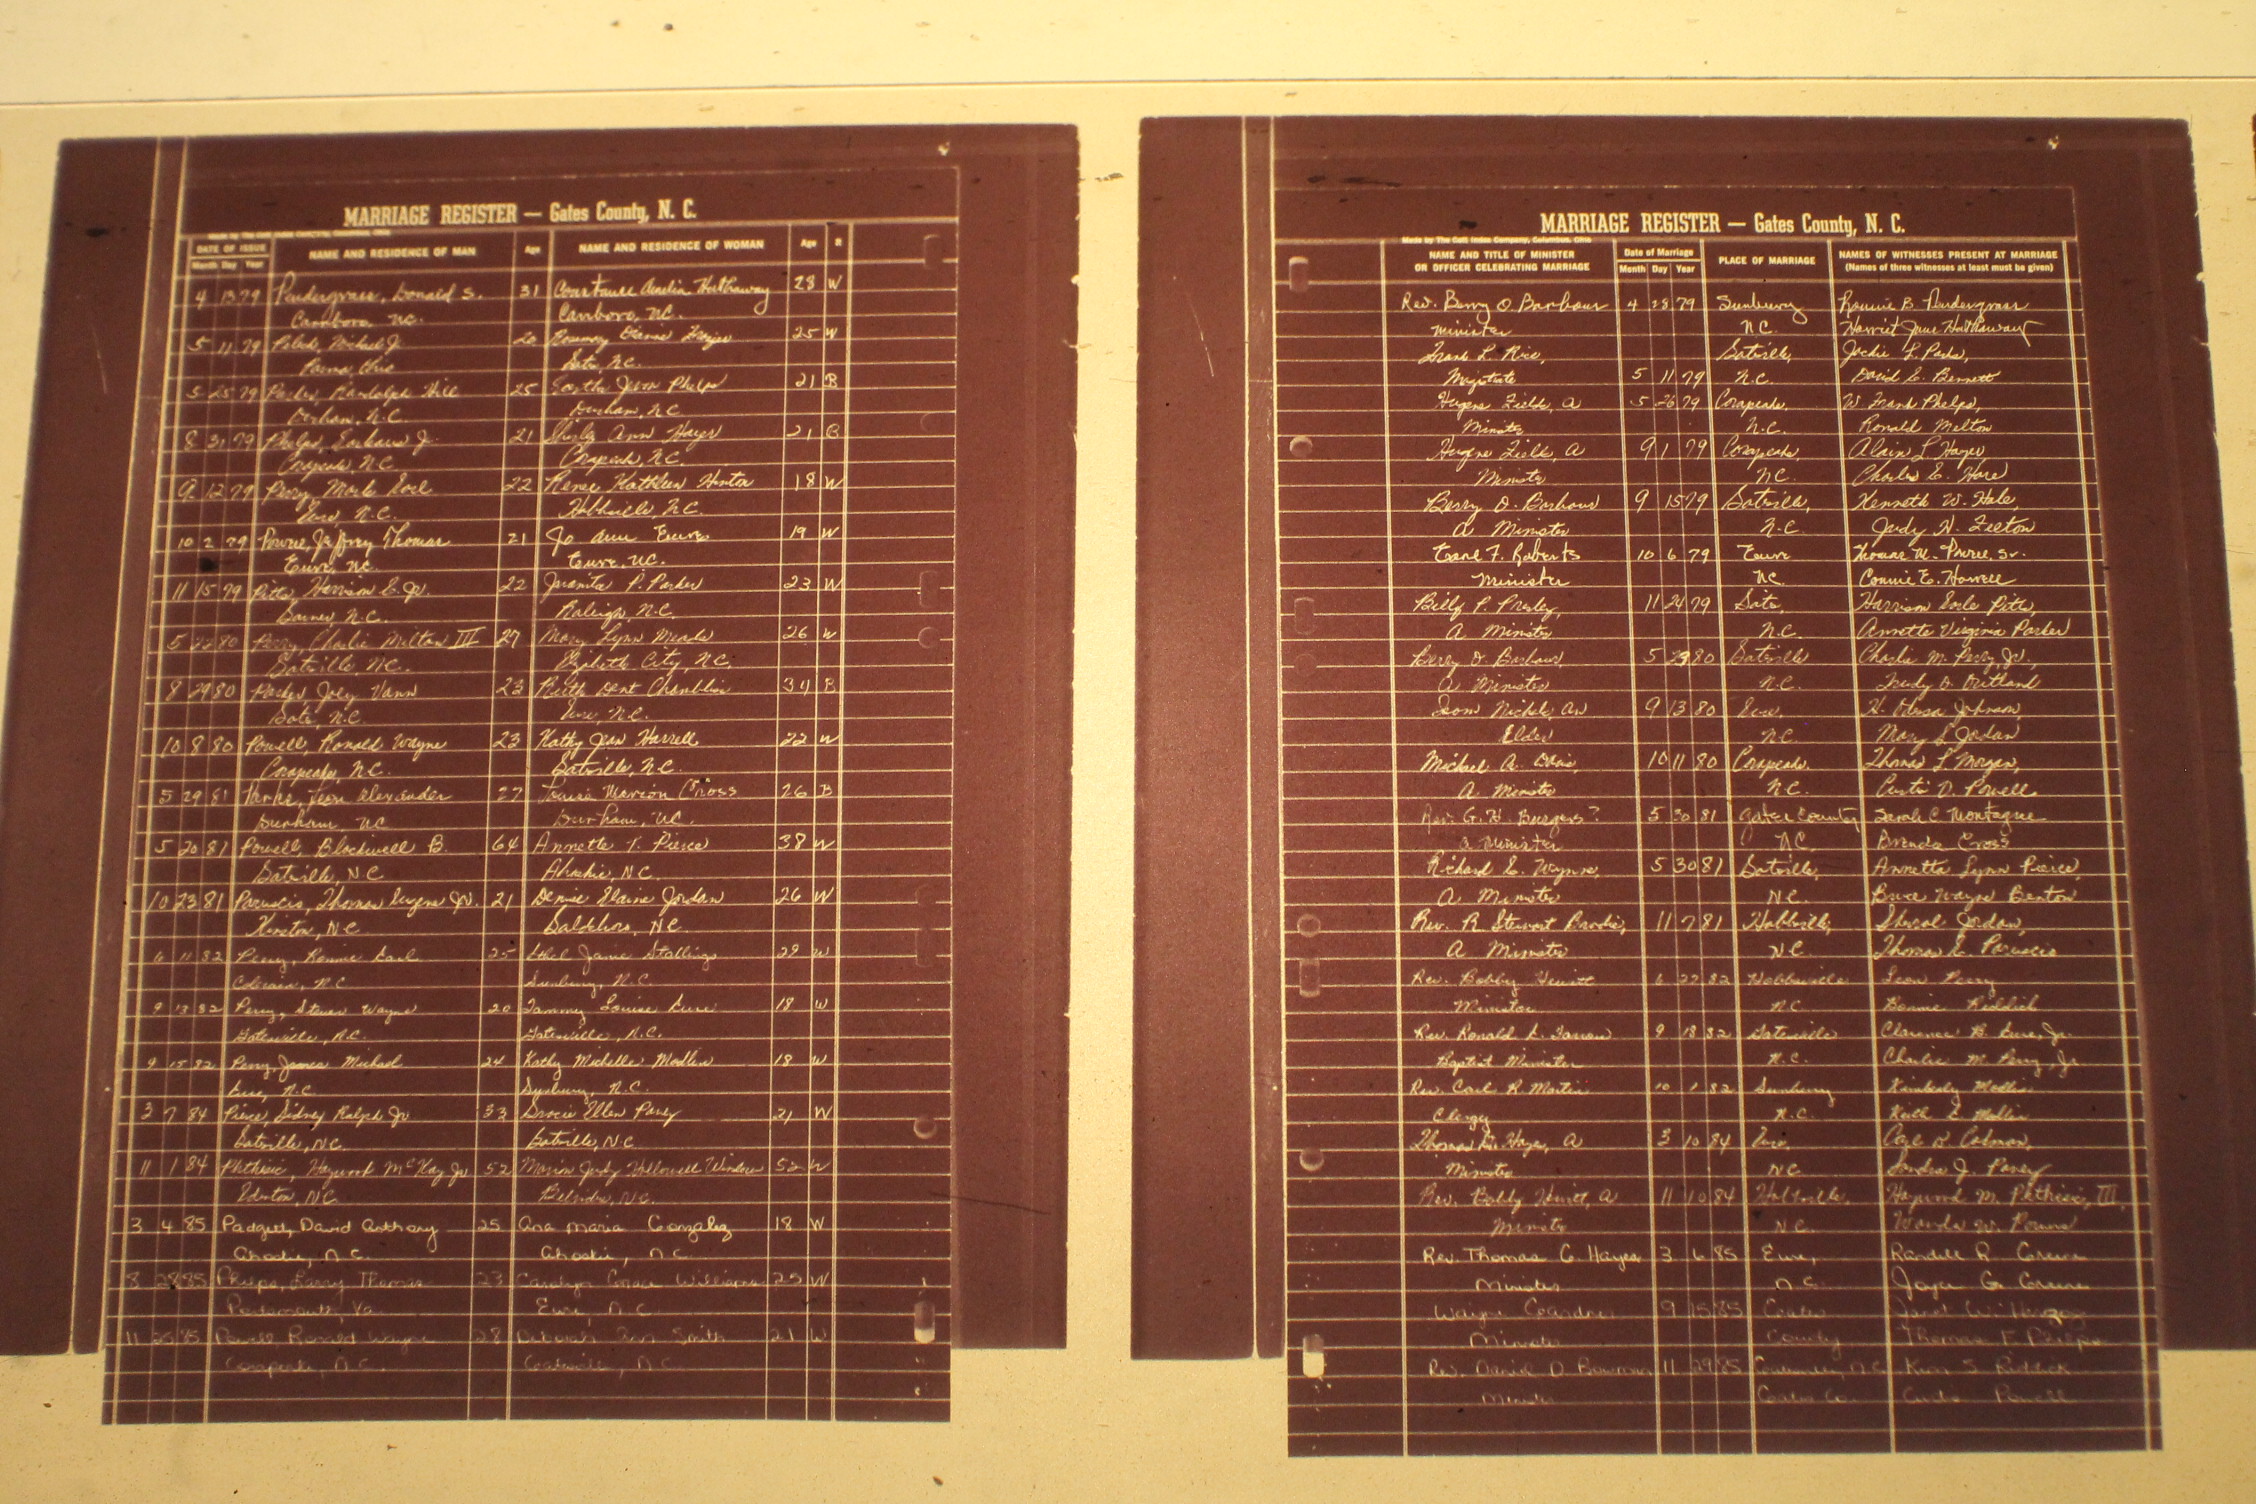 MARRIAGE REGISTER — Gates County, N. C.
DATE OF ISSUE
Month Day Year
NAME AND RESIDENCE OF MAN
Age
NAME AND RESIDENCE OF WOMAN
Age
R
4 13 79 Pendergrass, Donald S. 31 Constance Amelia Hathaway 28 W
Carrboro, NC. Carrboro, NC.
5 11 79 Michael J. 20 Rosemary Diane 25 W
Parma, Ohio Gates, N.C.
5 25 79 Parker, Randolph Hill 25 Phelps 21 B
Durham, N.C. Durham, NC
8 31 79 Phelps, J. 21 Shirley Ann Hayes 21 B
Corapeake, N.C. Corapeake, N.C.
9 12 79 Perry, Mark Earl 22 Renee Kathleen Hinton 18 W
Eure, N.C. Hobbsville, N.C.
10 2 79 Jeffrey Thomas 21 Jo Ann Eure 19 W
Eure, NC. Eure, NC.
11 15 79 Pitts, Harrison E. Jr. 22 Juanita P. Parker 23 W
Garner, N.C. Raleigh, N.C.
5 22 80 Perry, Charlie Milton III 27 Mary Lynn Meads 26 W
Gatesville, N.C. Elizabeth City, N.C.
8 29 80 Parker, Joey Vann 23 Ruth Dent Chamblin 34 B
Gates, N.C. Eure, N.C.
10 8 80 Powell, Ronald Wayne 23 Kathy Jean Harrell 22 W
Corapeake, N.C. Gatesville, N.C.
5 29 81 Parks, Leon Alexander 27 Louise Marion Cross 26 B
Durham, NC Durham, NC.
5 20 81 Powell, Blackwell B. 64 Annette T. Pierce 38 W
Gatesville, NC Ahoskie, NC.
10 23 81 Paruscio, Thomas Eugene Jr. 21 Denise Elaine Jordan 26 W
Kinston, NC Goldsboro, NC.
6 11 82 Perry, Ronnie Earl 25 Ethel Jamie Stallings 29 W
Colerain, N.C. Sunbury, N.C.
9 13 82 Perry, Steven Wayne 20 Tammy Louise Eure 18 W
Gatesville, N.C. Gatesville, N.C.
9 15 82 Perry, James Michael 24 Kathy Michelle Modlin 18 W
Eure, N.C. Sunbury, N.C.
3 7 84 Pierce, Sidney Ralph Jr 33 Ellen Parey 21 W
Gatesville, NC. Gatesville, NC
11 1 84 Phthisic, Haywood McKay Jr. 52 Marion Judy Hollowell Winslow 52 W
Edenton, N.C. Belvidere, N.C.
3 4 85 Padgett, David Anthony 25 Ana Maria Gonzalez 18 W
Ahoskie, N.C. Ahoskie, N.C.
8 28 85 Phelps, Larry Thomas 23 Carolyn Grace Williams 25 W
Portsmouth, Va. Eure, N.C.
11 25 85 Powell, Ronald Wayne 28 Deborah Ann Smith 21 W
Corapeake, N.C. Gatesville, N.C.
MARRIAGE REGISTER — Gates County, N. C.
Made by The Cott Index Company, Columbus, Ohio
NAME AND TITLE OF MINISTER
OR OFFICER CELEBRATING MARRIAGE
Date of Marriage
Month Day Year
PLACE OF MARRIAGE
NAMES OF WITNESSES PRESENT AT MARRIAGE
(Names of three witnesses at least must be given)
Rev. Berry O. Barbour 4 28 79 Sunbury Ronnie B. Pendergrass
Minister N.C. Harriet Jane Hathaway
Frank L. Rice, Gatesville, Jackie L. Parks,
Magistrate 5 11 79 N.C. David E. Bennett
A 5 26 79 Corapeake, W. Frank Phelps,
Minister N.C. Ronald Melton
A 9 1 79 Corapeake, Alvin L. Hayes,
Minister NC. Charles E. Hare
Berry O. Barbour 9 15 79 Gatesville, Kenneth W. Hale,
A Minister N.C. Judy H. Felton
Earl F. Roberts 10 6 79 Eure Thomas M. Sr.
Minister NC Connie E. Howell
Billy P. Presley, 11 24 79 Gates, Harrison Earle Pitts,
A Minister N.C. Annette Virginia Parker
Berry O. Barbour, 5 29 80 Gatesville Charlie M. Perry, Jr.,
A Minister N.C. Trudy O. Outland
Isom Nichols, An 9 13 80 Eure, H. Odessa Johnson,
Elder N.C. Mary L. Jordan
Michael A. Davis, 10 11 80 Corapeake, Thomas L. Morgan,
A Minister N.C. Curtis D. Powell
Rev. G. H. Burgess? 5 30 81 Gates County Sarah C. Montague
a Minister NC. Brenda Cross
Richard E. Wynne, 5 30 81 Gatesville, Annetta Lynn Pierce,
A Minister NC. Bruce Wayne Benton
Rev. R. Stewart Brodie, 11 7 81 Hobbsville, Sheral Jordan,
A Minister NC. Thomas E. Paruscio
Rev. Bobby Hewitt 6 27 82 Hobbsville Leon Perry
Minister N.C. Bonnie Riddick
Rev. Ronald L. 9 18 82 Gatesville Clarence B. Eure, Jr.
Baptist Minister N.C. Charlie M. Perry, Jr
Rev. Carl R. Martin 10 1 82 Sunbury Kimberly Modlin
Clergy N.C. Keith E. Modlin
Thomas G. Hayes, A 3 10 84 Eure, Colman,
Minister NC. Sandra J. Parey
Rev. Bobby Hewitt, A 11 10 84 Hobbsville, Haywood M. Phthisic, III,
Minister N.C. Wanda W.
Rev. Thomas G. Hayes 3 6 85 Eure, Randell R.
Minister N.C. Joyce G.
Wayne Gardner 9 15 85 Gates Janet W. Herzog
Minister County Thomas F. Phelps
Rev. David D. Bowman 11 29 85 Gatesville, N.C. Kim S. Riddick
Minister Gates Co. Curtis Powell